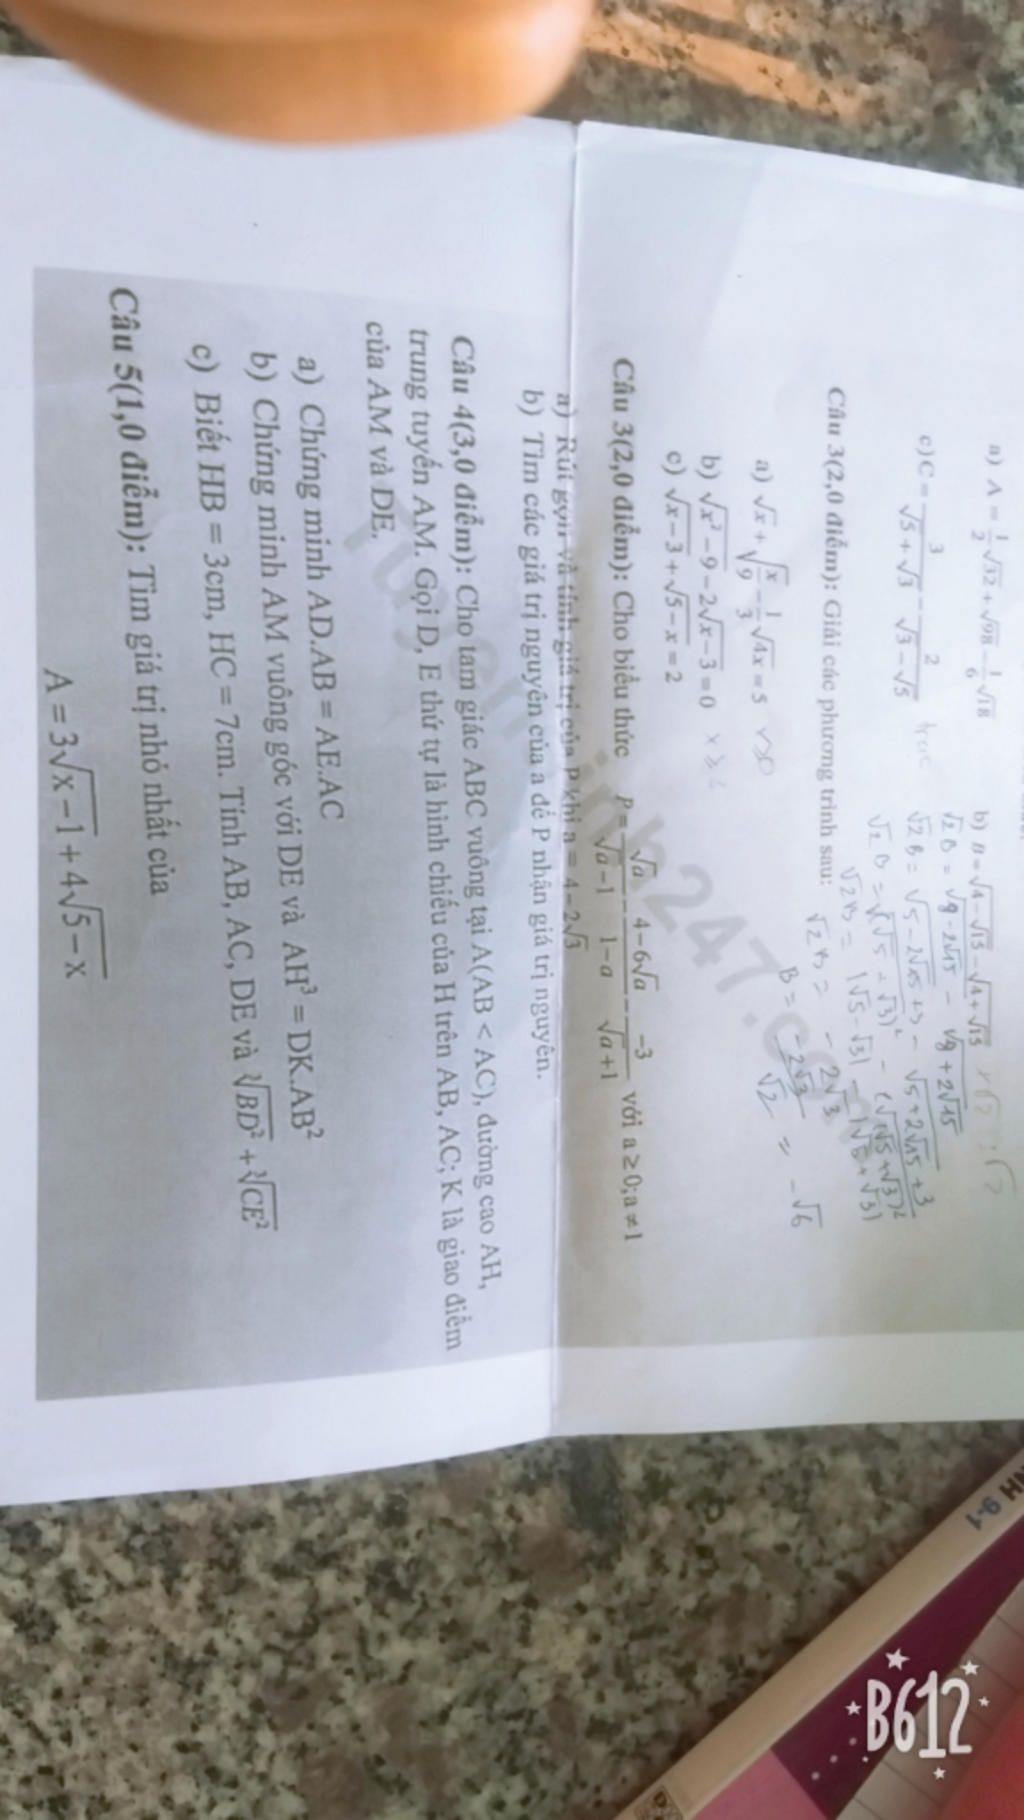 a) A = 1/2 √32 + √98 − 1/6 √18
b) B = √(4−√15) − √(4+√15)
√2 B = √(8−2√15) − √(8+2√15)
c) C = 3/(√5+√3) − 2/(√3−√5)
√2 B = √(5−2√15+3) − √(5+2√15+3)
√2 B = √(√5−√3)² − √(√5+√3)²
√2 B = |√5−√3| − |√5+√3|
√2 B = −2√3
B = −2√3/√2 = −√6
Câu 3(2,0 điểm): Giải các phương trình sau:
a) √x + √(x/9) − 1/3 √4x = 5
b) √(x²−9) − 2√(x−3) = 0
c) √(x−3) + √(5−x) = 2
Câu 3(2,0 điểm): Cho biểu thức P = √a/(√a−1) − (4−6√a)/(1−a) − −3/(√a+1) với a ≥ 0; a ≠ 1
a) Rút gọn và tính giá trị của P khi a = 4−2√3
b) Tìm các giá trị nguyên của a để P nhận giá trị nguyên.
Câu 4(3,0 điểm): Cho tam giác ABC vuông tại A(AB < AC), đường cao AH,
trung tuyến AM. Gọi D, E thứ tự là hình chiếu của H trên AB, AC; K là giao điểm
của AM và DE.
a) Chứng minh AD.AB = AE.AC
b) Chứng minh AM vuông góc với DE và AH³ = DK.AB²
c) Biết HB = 3cm, HC = 7cm. Tính AB, AC, DE và ∛BD² + ∛CE²
Câu 5(1,0 điểm): Tìm giá trị nhỏ nhất của
A = 3√(x−1) + 4√(5−x)
NH 9-1
B612